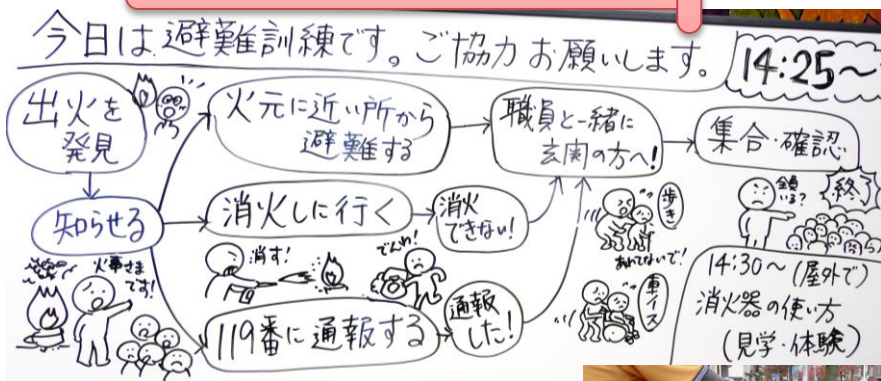 今日は避難訓練です。ご協力お願いします。
14:25~
出火を
発見
知らせる
火事さま
です!
火元に近い所から
避難する
消火しに行く
消す!
消火
できない!
119番に通報する
通報
した!
職員と一緒に
玄関の方へ!
歩き
あわてないで!
車イス
集合・確認
全員
いる?
終了
14:30~(屋外で)
消火器の使い方
(見学・体験)